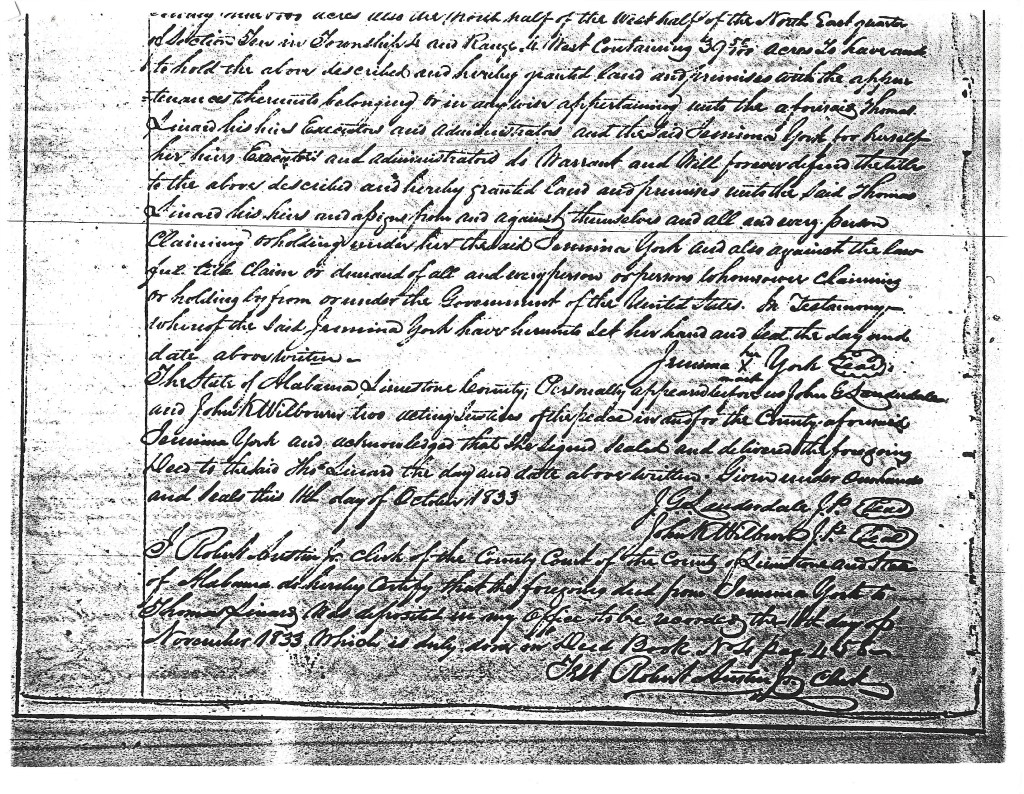 acres also the North half of the West half of the North East quarter
of Section Ten in Township 4 and Range 4 West Containing 39 acres To have and
to hold the above described and hereby granted land and premises with the appur
tenances thereunto belonging or in any wise appertaining unto the aforesaid Thomas
Linard his heirs Executors and administrators and the said Jemima York for herself
her heirs Executors and administrators do Warrant and Will forever defend the title
to the above described and hereby granted land and premises unto the said Thomas
Linard his heirs and assigns from and against themselves and all and every person
Claiming or holding under her the said Jemima York and also against the law
ful title Claim or demand of all and every person or persons whomsoever Claiming
or holding by from or under the Government of the United States. In Testimony
whereof the said Jemima York have hereunto Set her hand and Seal the day and
date above written
Jemima X York Seal
mark
The State of Alabama Limestone County, Personally appeared before us John Lauderdale
and John K Wilbourn two acting Justices of the peace in and for the County aforesaid
Jemima York and acknowledged that she signed sealed and delivered the foregoing
Deed to the said Thos Linard the day and date above written. Given under our hands
and seals this 11th day of October 1833
J. G. Lauderdale J.P. Seal
John K Wilbourn J.P. Seal
I Robert Austin Jr. Clerk of the County Court of the County of Limestone and State
of Alabama do hereby Certify that the foregoing deed from Jemima York to
Thomas Linard Was deposited in my Office to be recorded the 11th day of
November 1833 Which is duly done in Deed Book No 4 page
Test Robert Austin Jr. Clerk